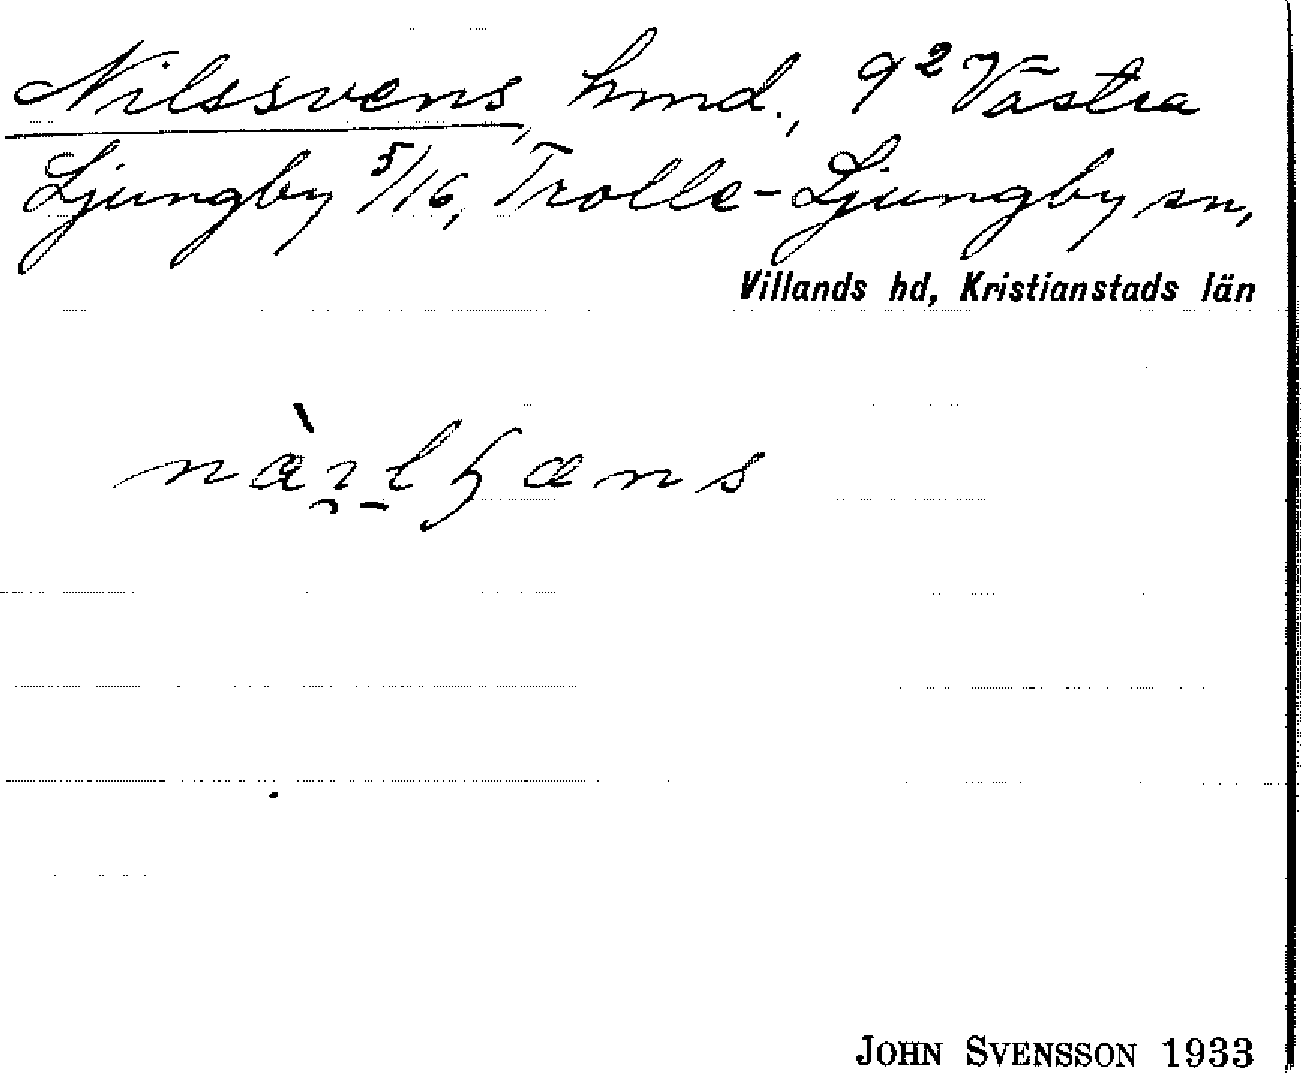 Nilssvens, hmd., 9² Västra
Ljungby 5/16, Trolle-Ljungby sn,
Villands hd, Kristianstads län
JOHN SVENSSON 1933